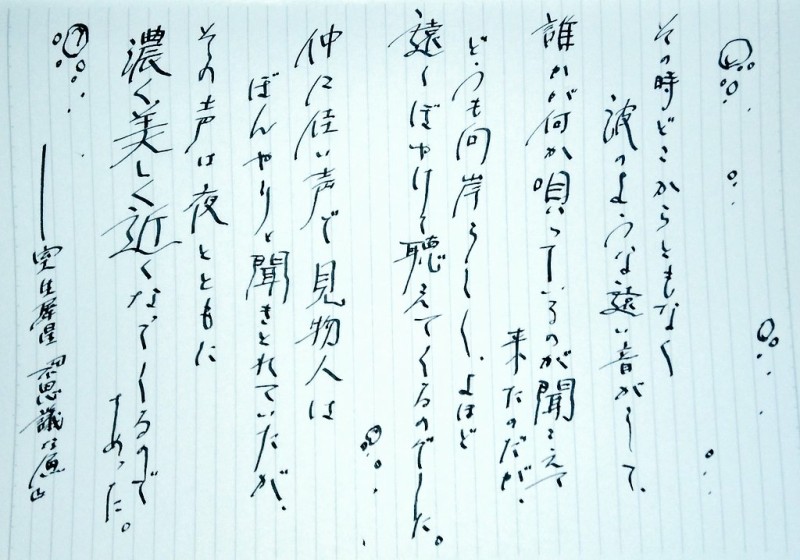 その時どこからともなく
波のような遠い音がして、
誰かが何か唄っているのが聞こえて
来たのだが、
どうも向岸らしく、よほど
遠くぼやけて聴えてくるのでした。
仲に佳い声で見物人は
ぼんやりと聞きとれていたが、
その声は夜とともに
濃く美しく近くなってくるので
あった。
室生犀星 不思議な魚